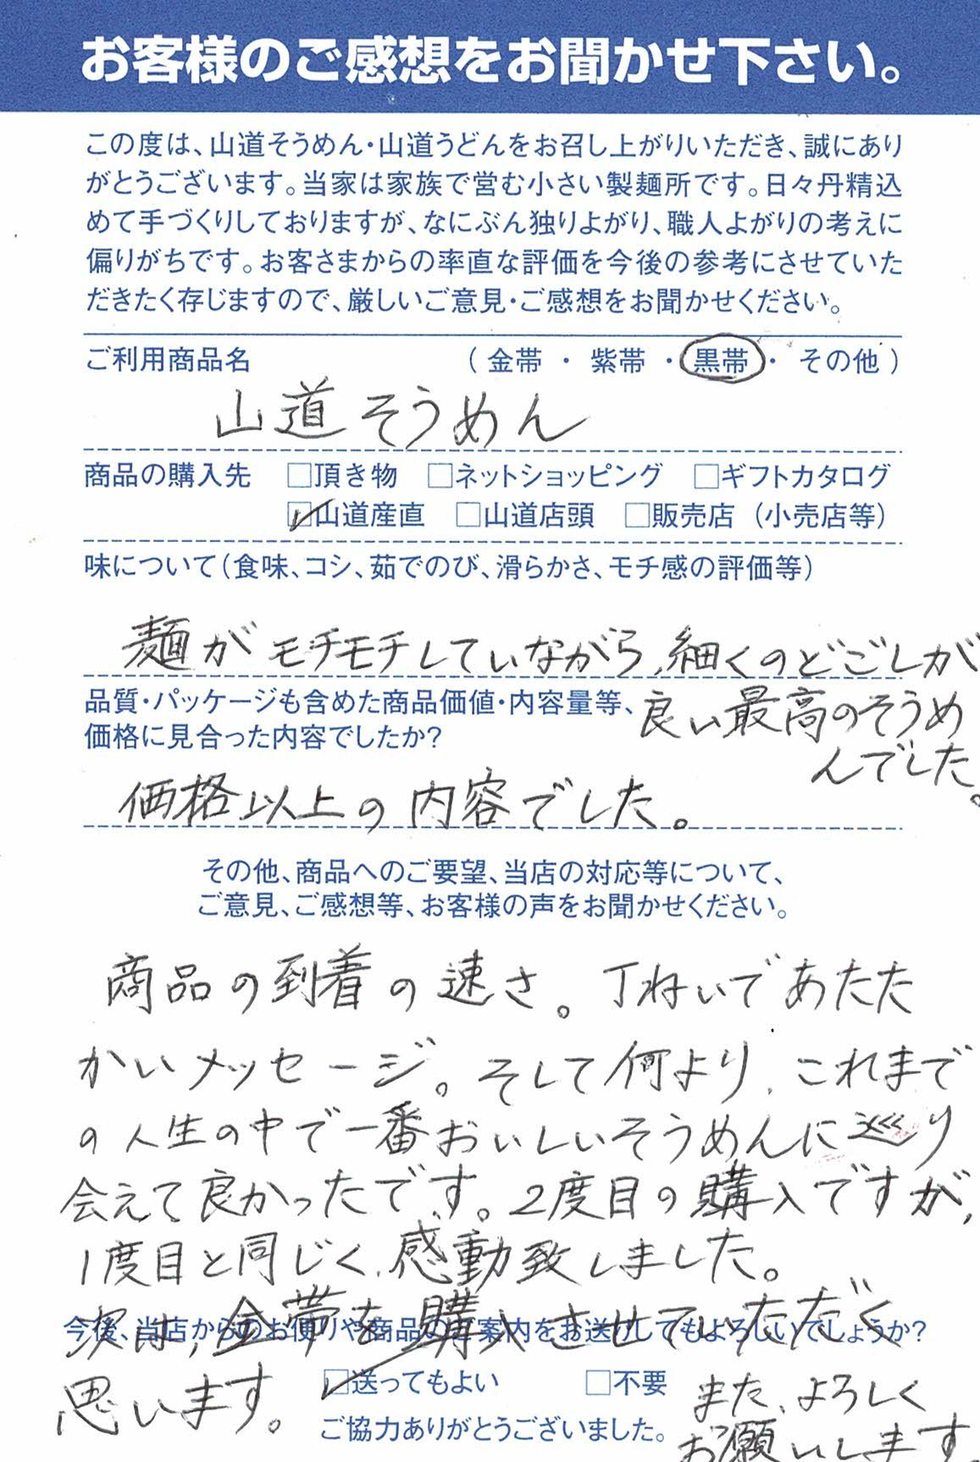 お客様のご感想をお聞かせ下さい。
この度は、山道そうめん・山道うどんをお召し上がりいただき、誠にあり
がとうございます。当家は家族で営む小さい製麺所です。日々丹精込
めて手づくりしておりますが、なにぶん独りよがり、職人よがりの考えに
偏りがちです。お客さまからの率直な評価を今後の参考にさせていた
だきたく存じますので、厳しいご意見・ご感想をお聞かせください。
ご利用商品名 （ 金帯 ・ 紫帯 ・ 黒帯 ・ その他 ）
山道そうめん
商品の購入先 □頂き物 □ネットショッピング □ギフトカタログ
☑山道産直 □山道店頭 □販売店（小売店等）
味について（食味、コシ、茹でのび、滑らかさ、モチ感の評価等）
麺がモチモチしていながら、細くのどごしが
良い最高のそうめ
んでした。
品質・パッケージも含めた商品価値・内容量等、
価格に見合った内容でしたか?
価格以上の内容でした。
その他、商品へのご要望、当店の対応等について、
ご意見、ご感想等、お客様の声をお聞かせください。
商品の到着の速さ。丁ねいであたた
かいメッセージ。そして何より、これまで
の人生の中で一番おいしいそうめんに巡り
会えて良かったです。2度目の購入ですが、
1度目と同じく、感動致しました。
次は、金帯を購入させていただく
思います。
また、よろしく
お願いします。
今後、当店からのお便りや商品のご案内をお送りしてもよろしいでしょうか?
☑送ってもよい □不要
ご協力ありがとうございました。